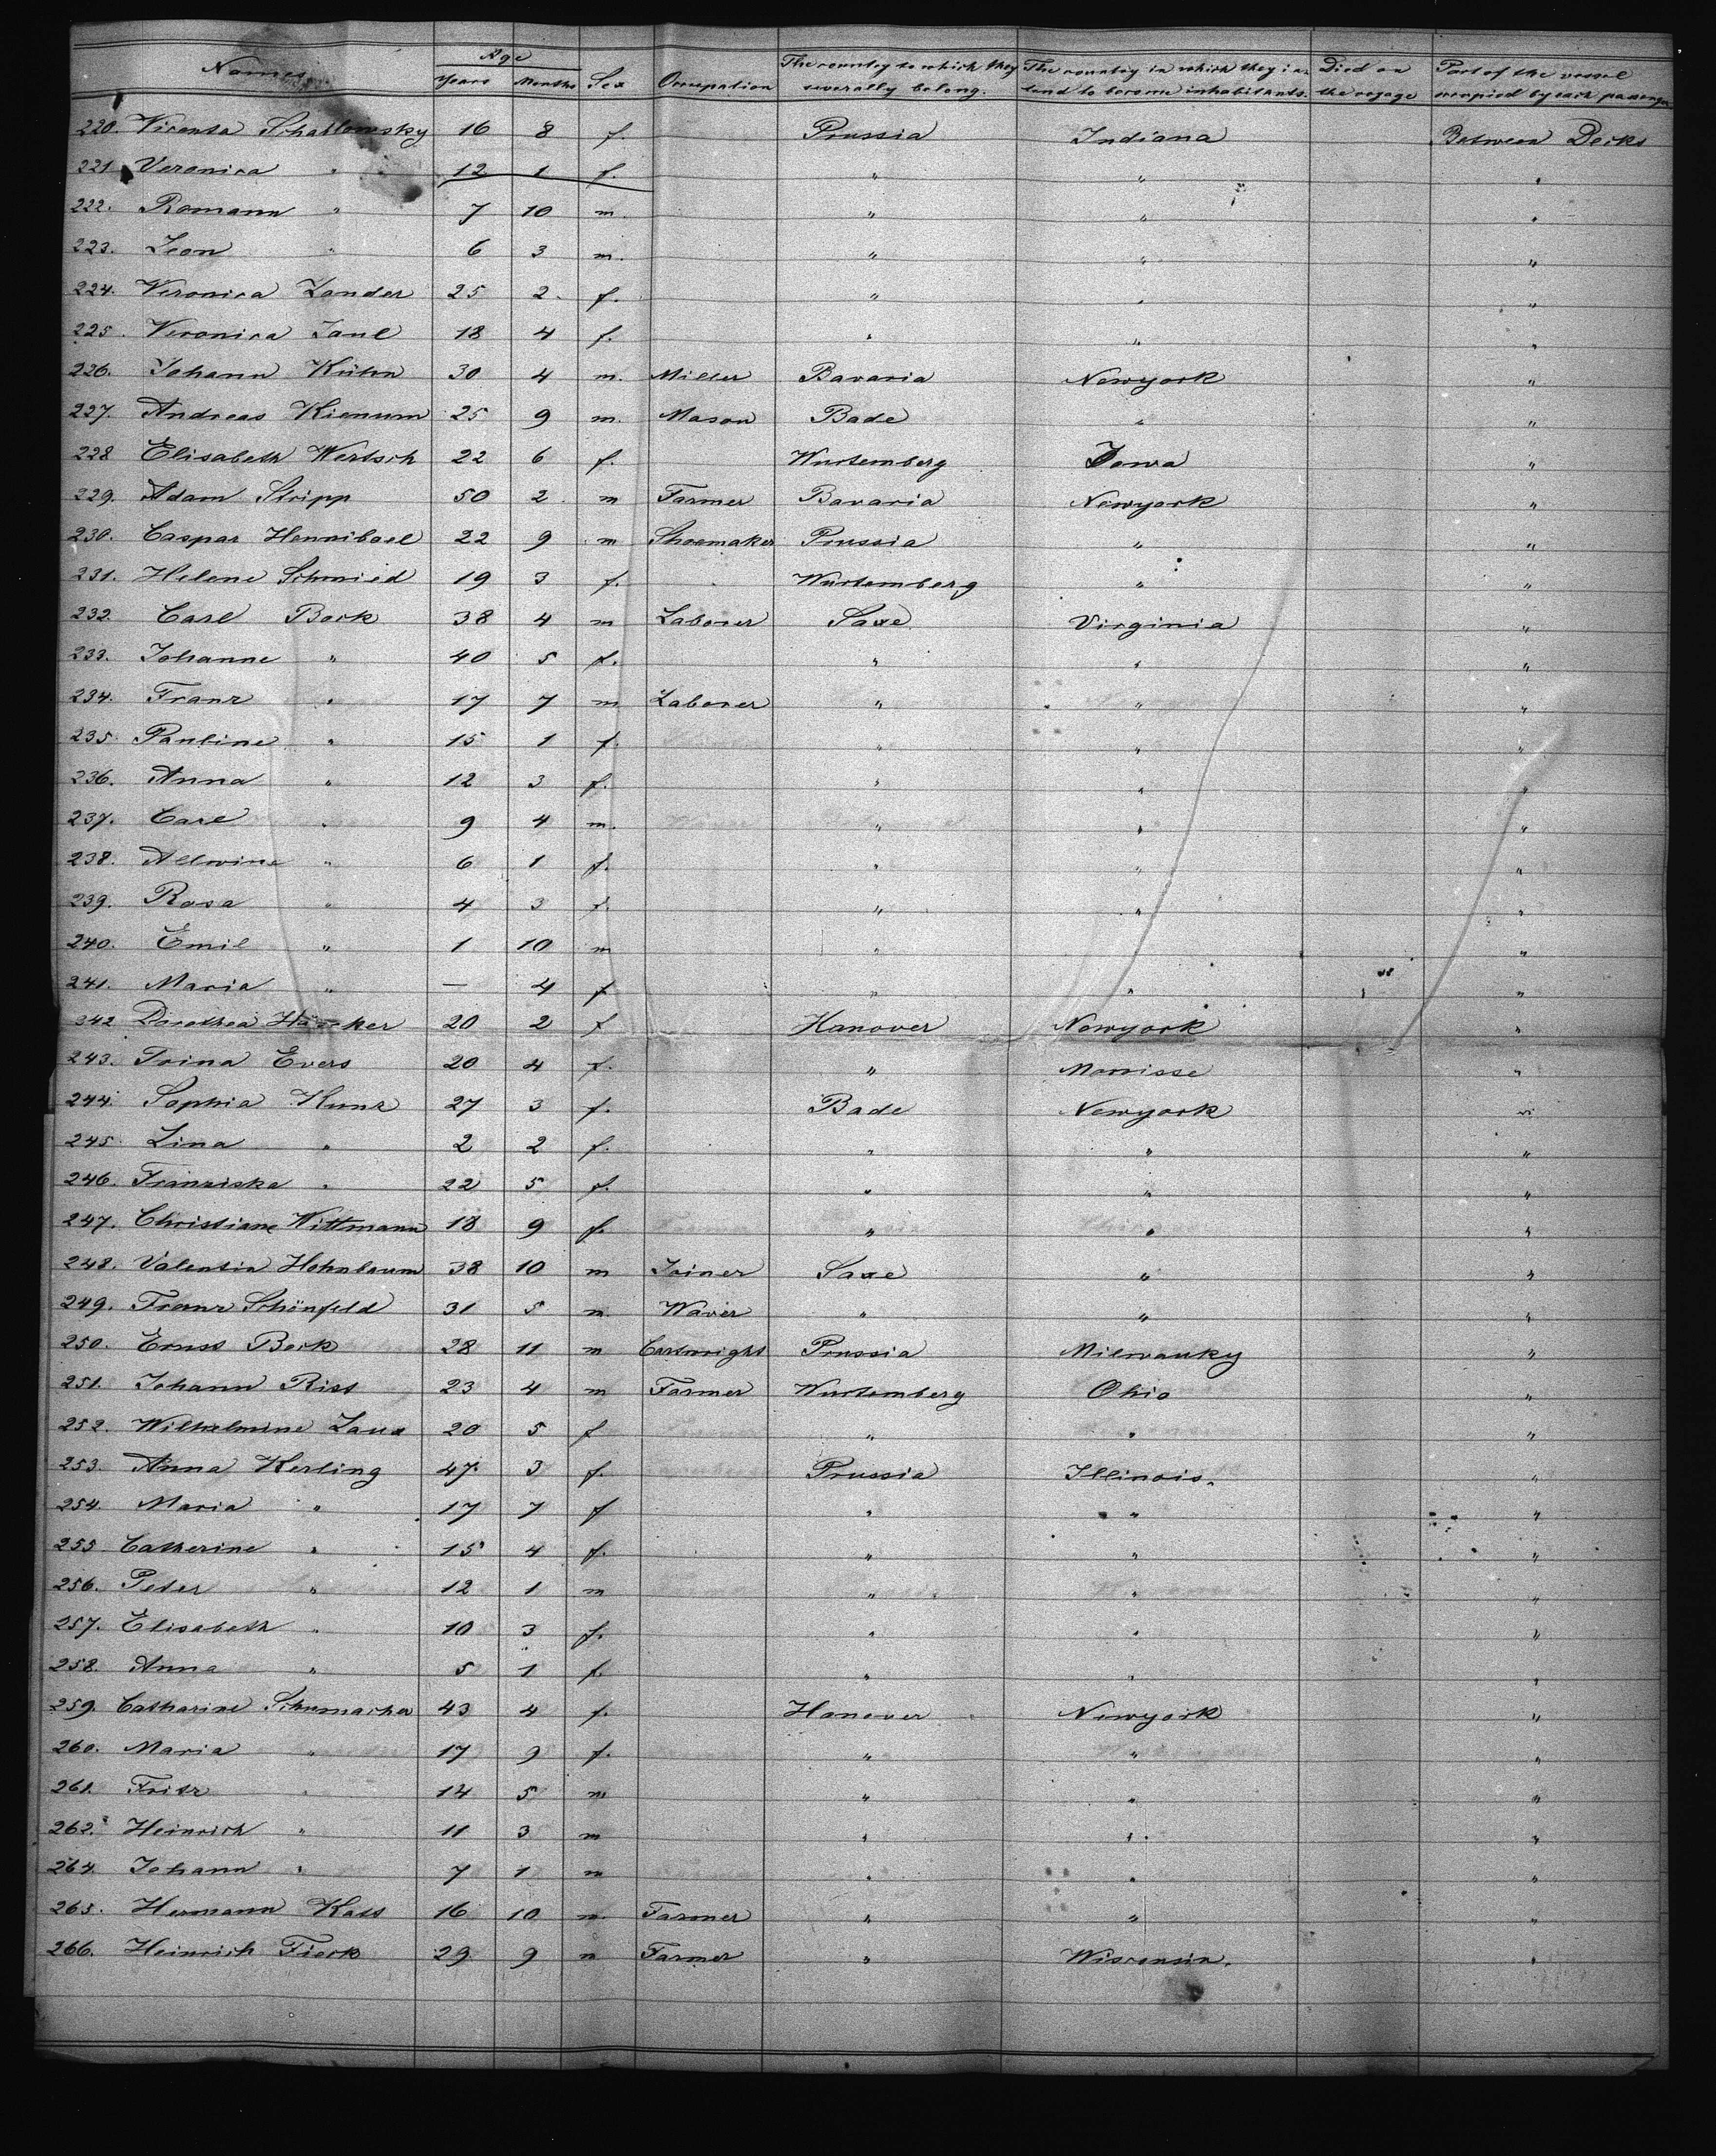 Names Age Years Months Sex Occupation The country to which they severally belong. The country in which they intend to become inhabitants. Died on the voyage Part of the vessel occupied by each passenger
220. Vicenta Schablowsky 16 8 f. Prussia Indiana Between Decks
221 Veronica " 12 1 f. " " "
222. Romann " 7 10 m. " " "
223. Leon " 6 3 m. " " "
224. Veronica Zander 25 2 f. " " "
225. Veronica 18 4 f. " " "
226. Johann Kühn 30 4 m. Miller Bavaria Newyork "
227. Andreas 25 9 m. Mason Bade " "
228 Elisabeth Wertsch 22 6 f. Wurtemberg Iowa "
229. Adam Stripp 50 2 m Farmer Bavaria Newyork "
230. Caspar Hennibael 22 9 m Shoemaker Prussia " "
231. Helene Schmied 19 3 f. Wurtemberg " "
232. Carl Bock 38 4 m Laborer Saxe Virginia "
233. Johanne " 40 5 f. " " "
234. Franz " 17 7 m Laborer " " "
235. Pauline " 15 1 f. " " "
236. Anna " 12 3 f. " " "
237. Carl " 9 4 m. " " "
238. Allwine " 6 1 f. " " "
239. Rosa " 4 3 f. " " "
240. Emil " 1 10 m " " "
241. Maria " — 4 f " " "
342 Dorothea 20 2 f Hanover Newyork "
243. Trina Evers 20 4 f. " Morrisse "
244. Sophia Kunz 27 3 f. Bade Newyork "
245. Lina " 2 2 f. " " "
246. Franziska " 22 5 f. " " "
247. Christiane Wittmann 18 9 f. " " "
248. Valentin Hohnbaum 38 10 m Joiner Saxe " "
249. Franz Schönfeld 31 5 m. Waver " " "
250. Ernst Beck 28 11 m Cartwright Prussia Milwauky "
251. Johann Rist 23 4 m Farmer Wurtemberg Ohio "
252. Wilhelmine Laux 20 5 f " " "
253. Anna Kerling 47 3 f. Prussia Illinois. "
254. Maria " 17 7 f " " "
255 Catherine " 15 4 f. " " "
256. Peter " 12 1 m " " "
257. Elisabeth " 10 3 f. " " "
258. Anna " 5 1 f. " " "
259. Catharine Schumacher 43 4 f. Hanover Newyork "
260. Maria " 17 9 f. " " "
261. Fritz " 14 5 m " " "
262. Heinrich " 11 3 m " " "
264. Johann " 7 1 m " " "
265. Hermann Kass 16 10 m. Farmer " " "
266. Heinrich Fierk 29 9 m Farmer " Wisconsin. "